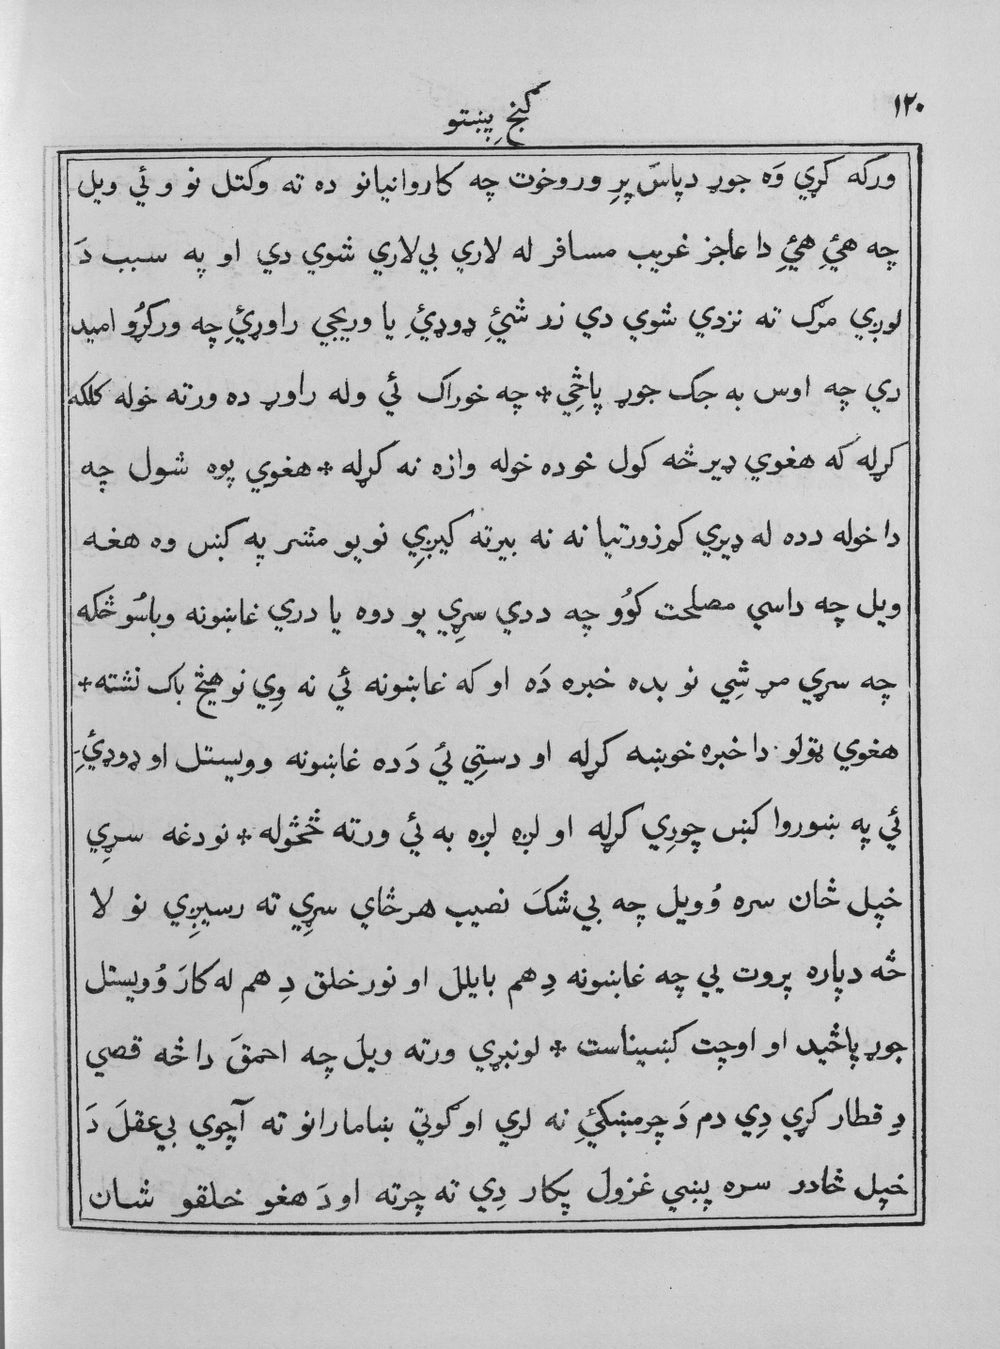 ۱۲۰
گنجِ پښتو
ورکه کړي وَه جوړ دپاسّ پرِ وروخوت چه کاروانیانو ده ته وکتل نو وئي ویل
چه هئِي هئِي دا عاجز غریب مسافر له لاري بي‌لاري شوي دي او په سبب دَ
لوږي مرګ ته نزدي شوي دي زر شئِي ډوډئِي یا وریجي راوړئِي چه ورکړُو امید
دي چه اوس به جک جوړ پاڅِي * چه خوراک ئي وله راوړ ده ورته خوله کلکه
کړله که هغوي ډیر څه کول خو ده خوله وازه نه کړله * هغوي پوه شول چه
دا خوله دده له ډیري کم‌زورتیا نه نه بیرته کیږِي نو یو مشر په کښ وه هغه
ویل چه داسي مصلحت کوُو چه ددي سړِي یو دوه یا دري غاښونه وباسُو څکه
چه سړي مړ شِي نو بده خبره دَه او که غاښونه ئي نه وِي نو هیڅ باک نشته *
هغوي ټولو دا خبره خوښه کړله او دستِي ئي دَده غاښونه وویستل او ډوډئِي
ئي په ښوروا کښ چورِي کړله او لږه لږه به ئي ورته څڅوله * نو دغه سړِي
خپل ځان سره وُویل چه بي‌شکَ نصیب هر ځاي سړِي ته رسیږِي نو لا
څه دپاره پروت یي چه غاښونه دِ هم بایلل او نور خلق دِ هم له کارَ وُویستل
جوړ پاڅید او اوچت کښیناست * لونبړي ورته ویل چه احمقَ دا څه قصي
دِ قطار کړي دِي دم دَ چرمښکئِي نه لري او ګوتي ښامارانو ته آچوي بي‌عقلَ دَ
خپل څادر سره پښي غزول پکار دِي ته چرته او دَ هغو خلقو شان